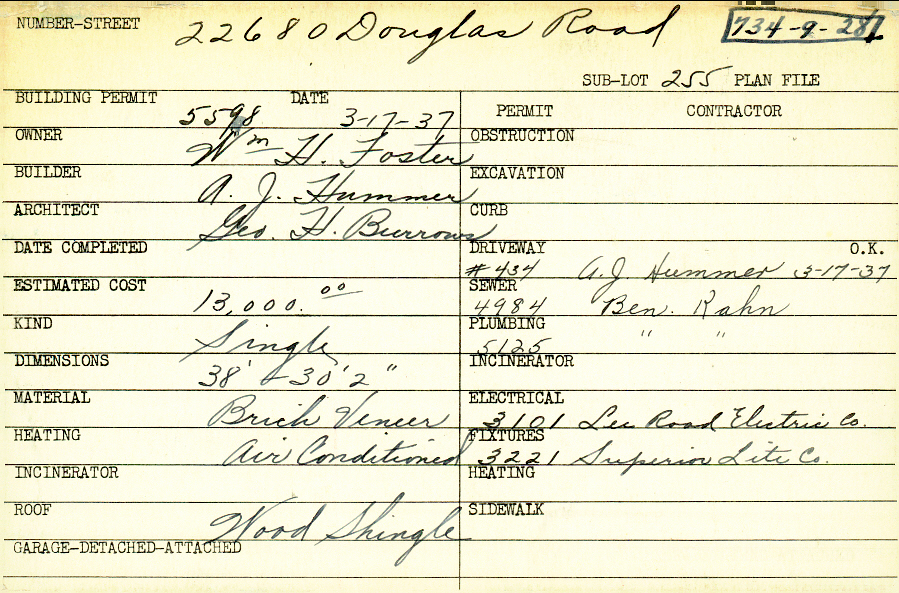 NUMBER-STREET 22680 Douglas Road 734-9-28
SUB-LOT 255 PLAN FILE
BUILDING PERMIT 5598 DATE 3-17-37
PERMIT CONTRACTOR
OWNER Wm H. Foster
OBSTRUCTION
BUILDER A. J. Hummer
EXCAVATION
ARCHITECT Geo. H. Burrows
CURB
DATE COMPLETED
DRIVEWAY #434 A. J Hummer O.K. 3-17-37
ESTIMATED COST 13,000.00
SEWER 4984 Ben. Kahn
KIND Single
PLUMBING 5125 " "
DIMENSIONS 38' - 30' 2"
INCINERATOR
MATERIAL Brick Veneer
ELECTRICAL 3101 Lee Road Electric Co.
HEATING Air Conditioned
FIXTURES 3221 Superior Lite Co.
INCINERATOR
HEATING
ROOF Wood Shingle
SIDEWALK
GARAGE-DETACHED-ATTACHED